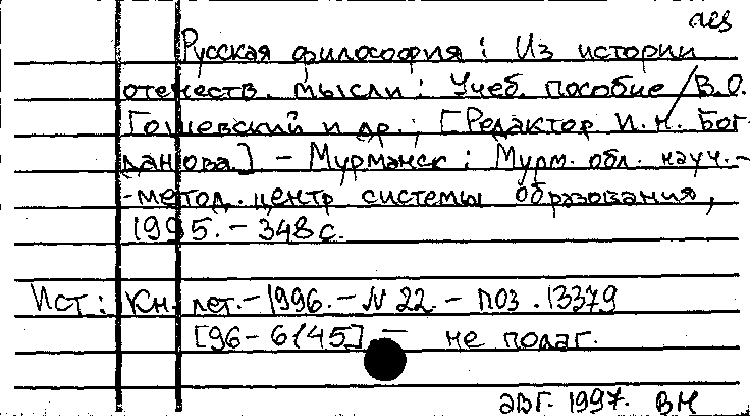 Русская философия : Из истории
отечеств. мысли : Учеб. пособие / В.О.
Гошевский и др. ; [Редактор И.Н. Бог-
данова.] - Мурманск : Мурм. обл. науч.-
-метод. центр системы образования,
1995. - 348 с.
Ист : Кн. лет. - 1996. - N 22. - поз. 13379
[96-6145] - не полаг.
авг. 1997. ВН